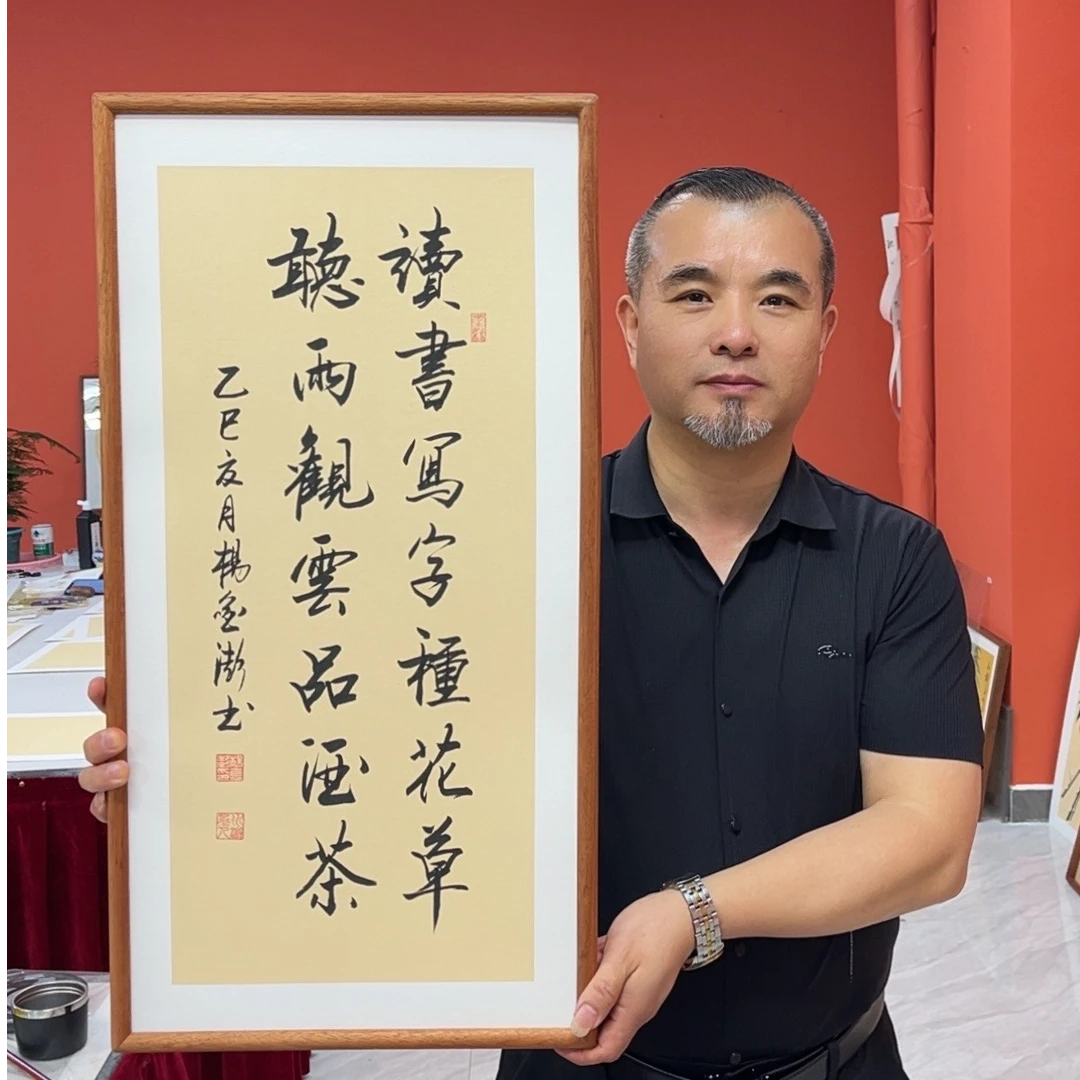 讀書寫字種花草
聽雨觀雲品酒茶
乙巳亥月楊金澎书